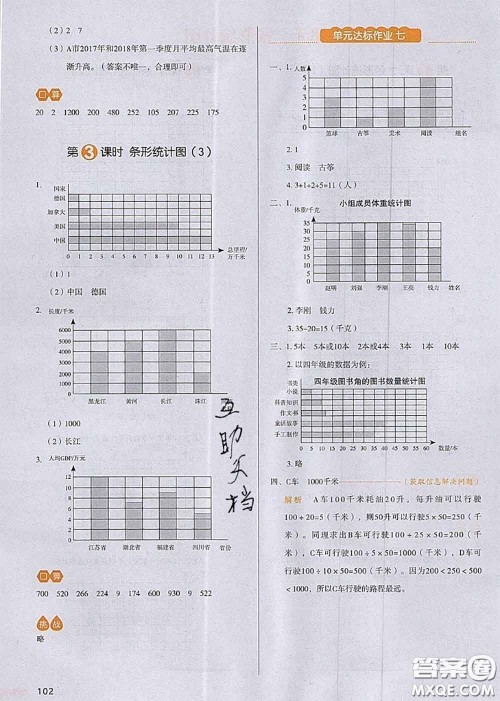 (2) 2 7
(3) A市2017年和2018年第一季度月平均最高气温在逐
渐升高。(答案不唯一,合理即可)
口算
20 2 1200 200 480 252 105 207 225 175
第3课时 条形统计图(3)
1.
国家
德国
加拿大
美国
中国
0 1 2 3 4 5 6 7 8 9 10 11 12 13
总里程/
万千米
(1) 1
(2) 中国 德国
2.
长度/千米
6000
5000
4000
3000
2000
1000
0
黑龙江 黄河 长江 珠江
(1) 1000
(2) 长江
3.
人均GDP/万元
12
10
8
6
4
2
0
江苏省 湖北省 福建省 四川省 省份
口算
700 520 266 224 9 174 600 930 9 522
挑战
略
102
单元达标作业 七
一、1.
人数
5
4
3
2
1
0
篮球 古筝 美术 阅读 组名
2. 1
3. 阅读 古筝
4. 3+1+2+5=11(人)
二、1.
小组成员体重统计图
体重/千克
35
30
25
20
15
10
5
0
赵明 刘强 李刚 王亮 钱力 姓名
2. 李刚 钱力
3. 35-20=15(千克)
三、1. 5本 5本或10本 2本或4本 3本 1本 10本
2. 以四年级的数据为例:
四年级图书角的图书数量统计图
书类
小说
科普知识
作文书
童话故事
手工制作
0 5 10 15 20 25 30 35 40 45 50 60 数量/本
3. 略
四、C车 1000千米
(获取信息解决问题)
解析 A车100千米耗油20升,每升油可以行驶
100÷20=5(千米),则50升可以行驶100÷20×50=250
(千米)。同理求出B车可行驶100÷25×50=200(千
米),C车可行驶100÷5×50=1000(千米),D车可
行驶100÷10×50=500(千米)。因为200<250<500
<1000,所以C车行驶的路程最远。
答案圈
MXQE.COM